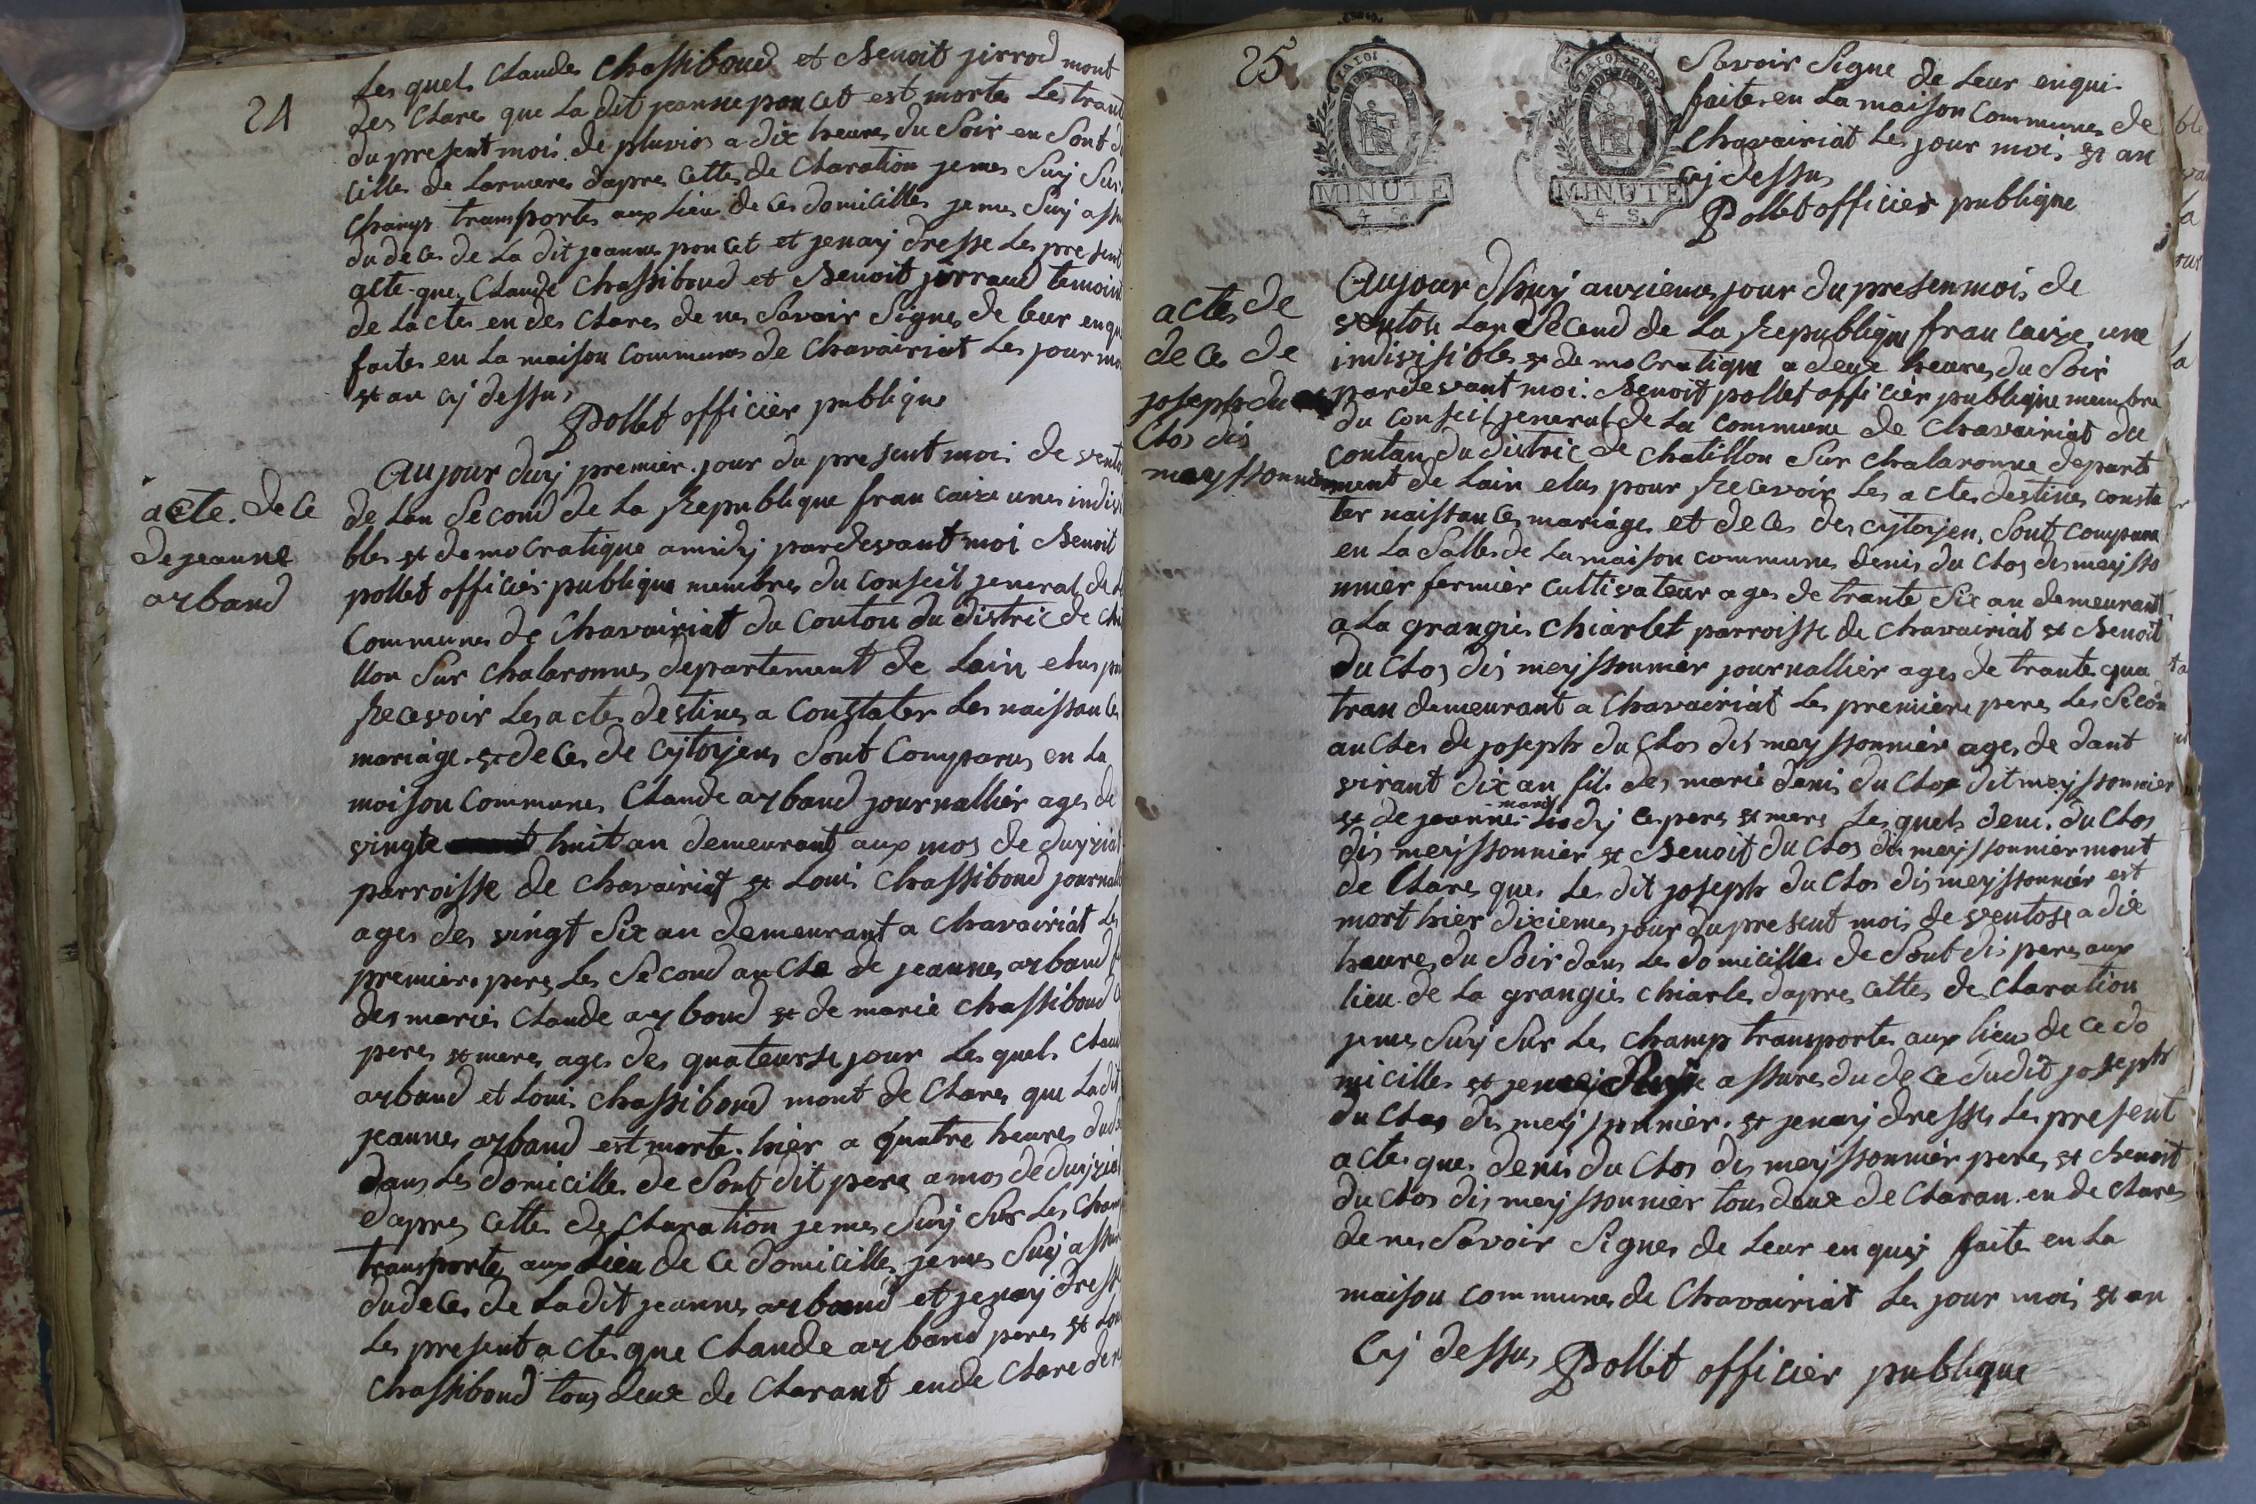 24
Les quels Claudes Chassiboud et Benoit jirrod mont
des Clare que La dit jeanne poncet est mortes Les trant
du present mois de pluvios a dix heures du Soir en Sont do
cilles de Larmeres dapres cettes de Claration jemes Suij Sur
Champ transportes aux Lieu de ces domicilles jemes Suij assu
du de ces de La dit jeannes poncet et jenaij dresse Les present
acte que Claude Chassiboud et Benoit jirraud temoins
de Lactes en des Clares de nes Savoir Signes de leur enqui
faites en La maison communes de Chavairiat Les jour moi
et an cij dessus
Pollet officier publique
acte. de ce
de jeanne
arband
Aujour duij premier jour du present moi de vento
de Lan Second de La Republique francaize unes indivi
bles et democratique amidij pardevant moi Benoit
pollet officier publique membres du conseil jeneral de La
Communes de Chavairiat du Contou du distric de Cha
llon Sur Chalaronnes departement de Lain elus pou
Recevoir Les actes destines a Constater Les naissances
mariage et de ces de cijtoijens Sont Comparus en La
maison Communes Claude arband journallier ages de
vingte huit an demeurant aux mos de duijziat
parroisse de Chavairiat et Loui Chassiboud journalli
ages des vingt Six an demeurant a Chavairiat Les
premieres peres Les Second ancle de jeannes arband fi
des maries Claude arboud et de marie Chassiboud Ce
peres et meres ages des quateurse jour Les quels Claud
arband et Loui Chassiboud mont de Clares que La dit
jeannes arband est morte. hier a quatre heures du S
dans Les domicilles de Sont dit peres a mos de duijziat
dapres cettes de Claration jemes Suij Sur Les Champ
transportes aux Lieu de ce domicilles jemes Suij assur
du de ces de La dit jeannes arband et jenaij dresse
Les present actes que Claude arband peres et Lou
Chassiboud tous deux de Clarant en de Clare de n
25
Savoir Signe de Leur enqui
faites en La maison communes de
Chavairiat Les jour mois et an
cij dessus
Pollet officier publique
MINUTE
4 S.
MINUTE
4 S.
actes de
de ces de
joseph du
Clos dis
meyssonnier
Aujour dhuij auziemes jour du presen mois de
ventose Lan Second de La Republique francaize une
indivisibles et democratique a deux heures du Soir
pardevant moi. Benoit pollet officier publique membre
du conseil jeneral de La commune de Chavairiat du
contau du distric de Chatillon Sur Chalaronne departe
ment de Lain elus pour Recevoir Les actes destines consta
ter naissances mariages et de ces des cijtoijen, Sont comparu
en La Salles de La maison communes denis du Clos dis meijsso
nnier fermier cultivateur ages de trante Six an demeurant
a La grangies Chiarlet parroisse de Chavairiat et Benoit
du Clos dis meijssonnier journallier ages de trante qua
tran demeurant a Chavairiat Les premieres peres Les Secon
ancles de joseph du Clos dis meyssonnier ages de dant
virant dix an fils des marie denis du Clos dit meyssonnier
et de jeannes mandij ces peres et meres Les quels deni. du Clos
dis meijssonnier et Benoit du Clos dis meijssonnier mont
de Clares ques Les dit joseph du Clos dis meyssonnier est
mort hier dixiemes jour du present mois de ventose a dix
heures du Soir dans Les domicilles de Sont dis peres aux
lieu de La grangies Chiarles dapres cettes de Claration
jemes Suij Sur Les Champ transportes aux lieu de ce do
micilles et je assures du de ce du dit joseph
du Clos dis meijssonnier. et jenaij dresses Les present
actes ques denis du Clos dis meijssonnier peres et Benoit
du Clos dis meijssonnier tous deux de Claran en de Clares
de nes Savoir Signes de Leur en quij faites en La
maison communes de Chavairiat Les jour mois et an
Cij dessus Pollet officier publique